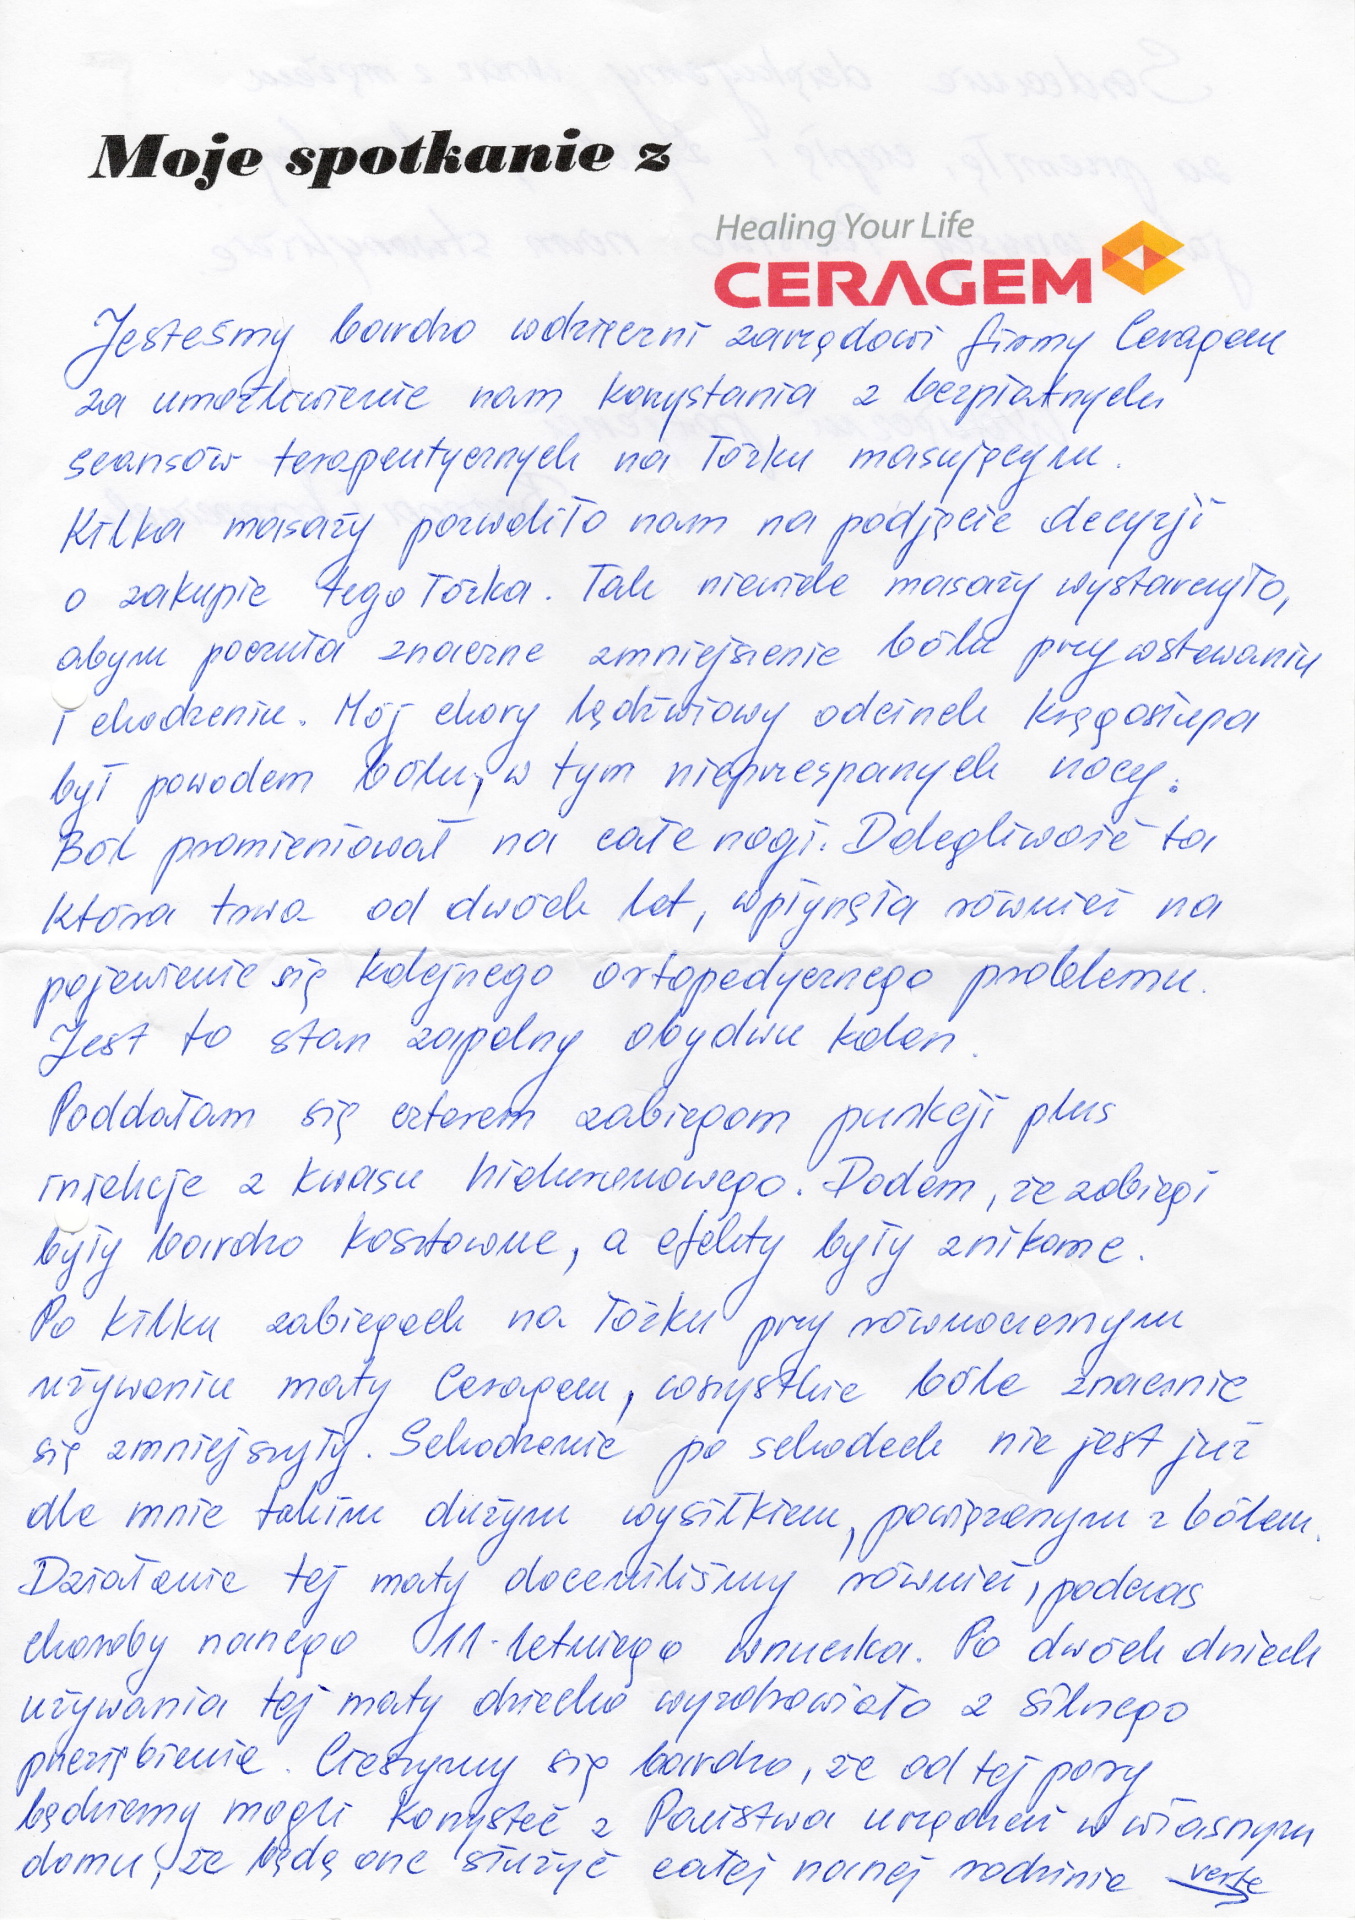 Moje spotkanie z
Healing Your Life
CERAGEM
Jesteśmy bardzo wdzięczni zarządowi firmy Ceragem
za umożliwienie nam korzystania z bezpłatnych
seansów terapeutycznych na łóżku masującym.
Kilka masaży pozwoliło nam na podjęcie decyzji
o zakupie tego łóżka. Tak niewiele masaży wystarczyło,
abym poczuła znaczne zmniejszenie bólu przy wstawaniu
i chodzeniu. Mój chory lędźwiowy odcinek kręgosłupa
był powodem bólu, w tym nieprzespanych nocy.
Ból promieniował na całe nogi. Dolegliwość ta
która trwa od dwóch lat, wpłynęła również na
pojawienie się kolejnego ortopedycznego problemu.
Jest to stan zapalny obydwu kolan.
Poddałam się czterem zabiegom punkcji plus
iniekcje z kwasu hialuronowego. Dodam, że zabiegi
były bardzo kosztowne, a efekty były znikome.
Po kilku zabiegach na łóżku przy równoczesnym
używaniu maty Ceragem, wszystkie bóle znacznie
się zmniejszyły. Schodzenie po schodach nie jest już
dla mnie takim dużym wysiłkiem, powiązanym z bólem.
Działanie tej maty doceniliśmy również, podczas
choroby naszego 11-letniego wnuczka. Po dwóch dniach
używania tej maty dziecko wyzdrowiało z silnego
przeziębienia. Cieszymy się bardzo, że od tej pory
będziemy mogli korzystać z Państwa urządzeń w własnym
domu, że będą one służyć całej naszej rodzinie verte